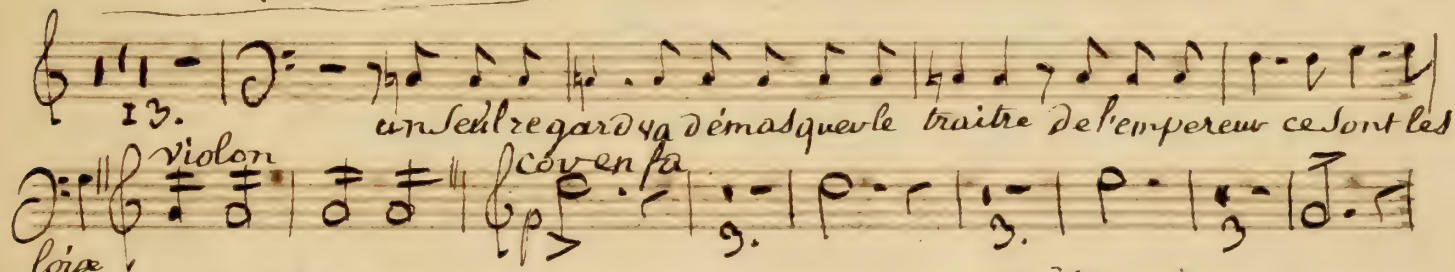 13.
un seul regard va démasquer le traitre de l'empereur ce sont les
violon cor en fa
p 3. 3. 3
loix